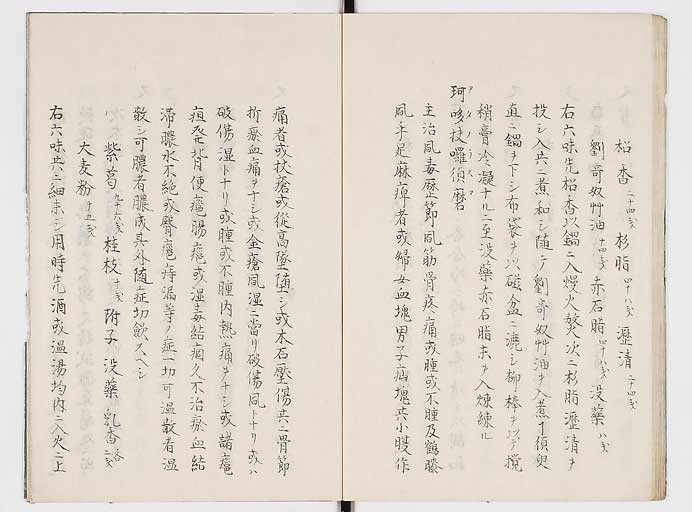 枱香二十四戔 杉脂四十八戔 瀝清二十四戔
劉哥奴艸油十四戔 赤石脂四十八戔 没藥八戔
右六味先枱香以鐹ニ入熳火熬次ニ杉脂瀝清ヲ
投シ入共ニ煮和シ随テ劉哥奴艸油ヲ入煮寸須臾
直ニ鐹ヲ下シ布袋ヲ以磁盆ニ漉シ柳棒ヲ以テ攪
稍膏冷凝ナルニ至没藥赤石脂末ヲ入煉練ル
珂哆抜囉須磨
主治風毒歴節風筋骨疼痛或腫或不腫及鶴膝
風手足麻痺者或婦女血塊男子疝塊共小腹作
痛者或杖瘡或從高墜堕シ或木石壓傷共ニ骨節
折瘀血痛ヲナシ或金瘡風湿ニ當リ破傷風トナリ或ハ
破傷湿トナリ或腫或不腫内熱痛ヲナシ或諸瘡
疽發背便瘡腸瘡或湿毒結痼久不治瘀血結
滞膿水不絶或臀瘡痔漏等ノ症一切可温散者温
散シ可膿者膿成其外随症切欽スヘシ
紫萄九十六戔 桂枝十戔 附子 没藥 乳香各二戔
大麦粉十五戔
右六味共ニ細末シ用時先酒或温湯均内ニ入火ニ上